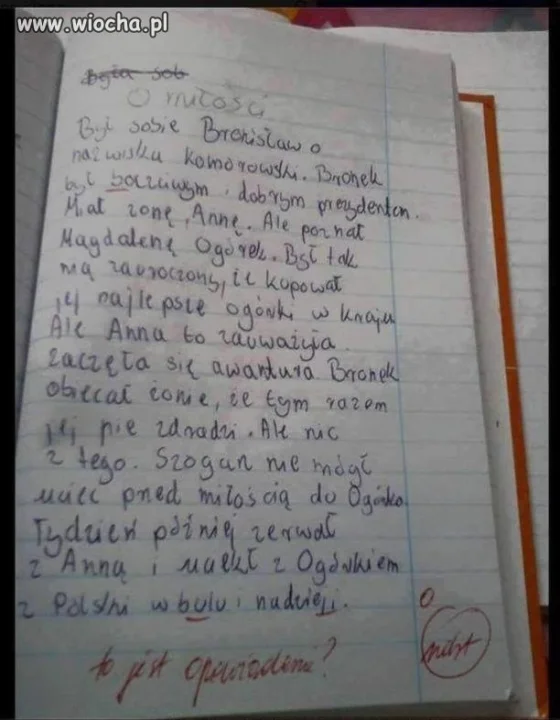 www.wiocha.pl
Była sob
O miłości
Był sobie Bronisław o
nazwisku Komorowski. Bronek
był poczciwym, dobrym prezydentem.
Miał żonę, Annę. Ale poznał
Magdalenę Ogórek. Był tak
nią zauroczony, że kupował
jej najlepsze ogórki w kraju
Ale Anna to zauważyła.
Zaczęła się awantura. Bronek
obiecał żonie, że tym razem
jej nie zdradzi. Ale nic
z tego. Szogun nie mógł
uciec przed miłością do Ogórka.
Tydzień później zerwał
z Anną i uciekł z Ogórkiem
z Polski w bulu i nadzieji.
to jest opowiadanie?
ndst